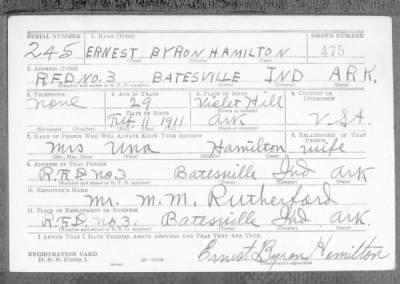 SERIAL NUMBER 1. NAME (Print) ORDER NUMBER
245 ERNEST BYRON HAMILTON 475
(First) (Middle) (Last)
2. ADDRESS (Print)
R.F.D NO. 3 BATESVILLE IND ARK.
(Number and street or R. F. D. number) (Town) (County) (State)
3. TELEPHONE 4. AGE IN YEARS 5. PLACE OF BIRTH 6. COUNTRY OF CITIZENSHIP
none 29 Violet Hill
DATE OF BIRTH (Town or county)
Feb. 11 1911 Ark U.S.A.
(Exchange) (Number) (Mo.) (Day) (Yr.) (State or country)
7. NAME OF PERSON WHO WILL ALWAYS KNOW YOUR ADDRESS 8. RELATIONSHIP OF THAT PERSON
Mrs Una Hamilton wife
(Mr., Mrs., Miss) (First) (Middle) (Last)
9. ADDRESS OF THAT PERSON
R.F.D. no. 3 Batesville Ind ark
(Number and street or R. F. D. number) (Town) (County) (State)
10. EMPLOYER'S NAME
Mr. M.M. Rutherford
11. PLACE OF EMPLOYMENT OR BUSINESS
R.F.D. no. 3. Batesville Ind ark.
(Number and street or R. F. D. number) (Town) (County) (State)
I AFFIRM THAT I HAVE VERIFIED ABOVE ANSWERS AND THAT THEY ARE TRUE.
REGISTRATION CARD
D. S. S. Form 1
Ernest Byron Hamilton
(Registrant's signature)